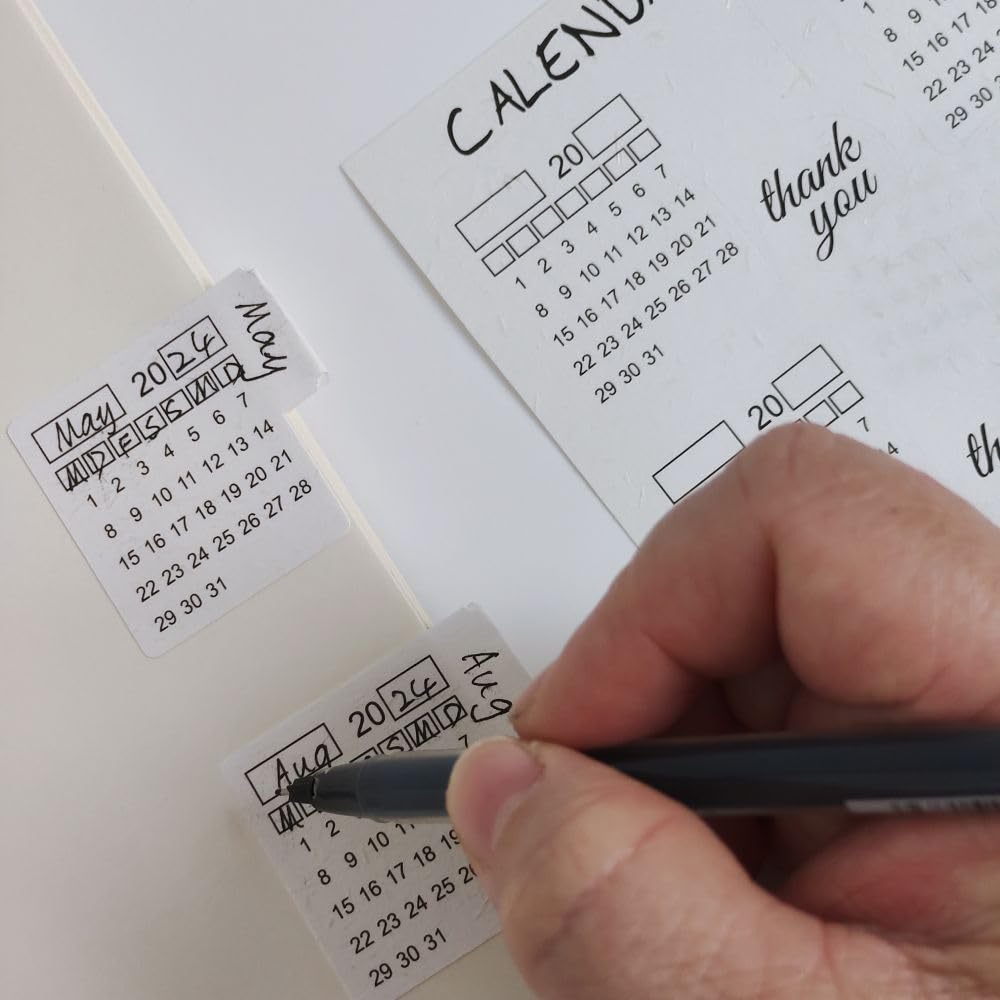 CALENDA
20
1 2 3 4 5 6 7
8 9 10 11 12 13 14
15 16 17 18 19 20 21
22 23 24 25 26 27 28
29 30 31
thank
you
1
8 9
15 16 17 18
22 23 24
29 30
20
7
14
th
May
May 2024
M D F S S M D
1 2 3 4 5 6 7
8 9 10 11 12 13 14
15 16 17 18 19 20 21
22 23 24 25 26 27 28
29 30 31
Aug
Aug 2024
M S M D
1 2 7
8 9 10 11
15 16 17 18 19
22 23 24 25
29 30 31